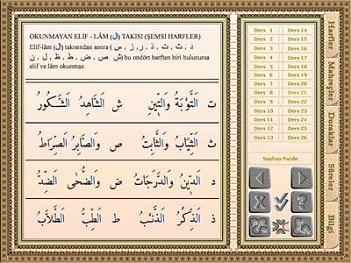 OKUNMAYAN ELİF - LÂM (ال) TAKISI (ŞEMSİ HARFLER)
Elif-lâm (ال) takısından sonra ( ت , ث , د , ذ , ر , ز , س
ش , ص , ض , ط , ظ , ل , ن) bu ondört harften biri bulunursa
elif ve lâm okunmaz
ت اَلتَّوْبَةُ وَالتِّينِ ش اَلشَّاهِدُ اَلشَّكُورُ
ث اَلثِّيَابُ وَالثَّابِتُ ص وَالصَّابِرُ اَلصِّرَاطُ
د اَلدِّينُ وَالدَّرَجَاتُ ض وَالضُّحٰى اَلضِّدُّ
ذ اَلذِّكْرُ اَلذَّنْبُ ط اَلطِّبُّ اَلطُّلَّابُ
Ders 1 Ders 14
Ders 2 Ders 15
Ders 3 Ders 16
Ders 4 Ders 17
Ders 5 Ders 18
Ders 6 Ders 19
Ders 7 Ders 20
Ders 8 Ders 21
Ders 9 Ders 22
Ders 10 Ders 23
Ders 11 Ders 24
Ders 12 Ders 25
Ders 13 Ders 26
Harfler
Mahreçler
Duraklar
Sûreler
Bilgi